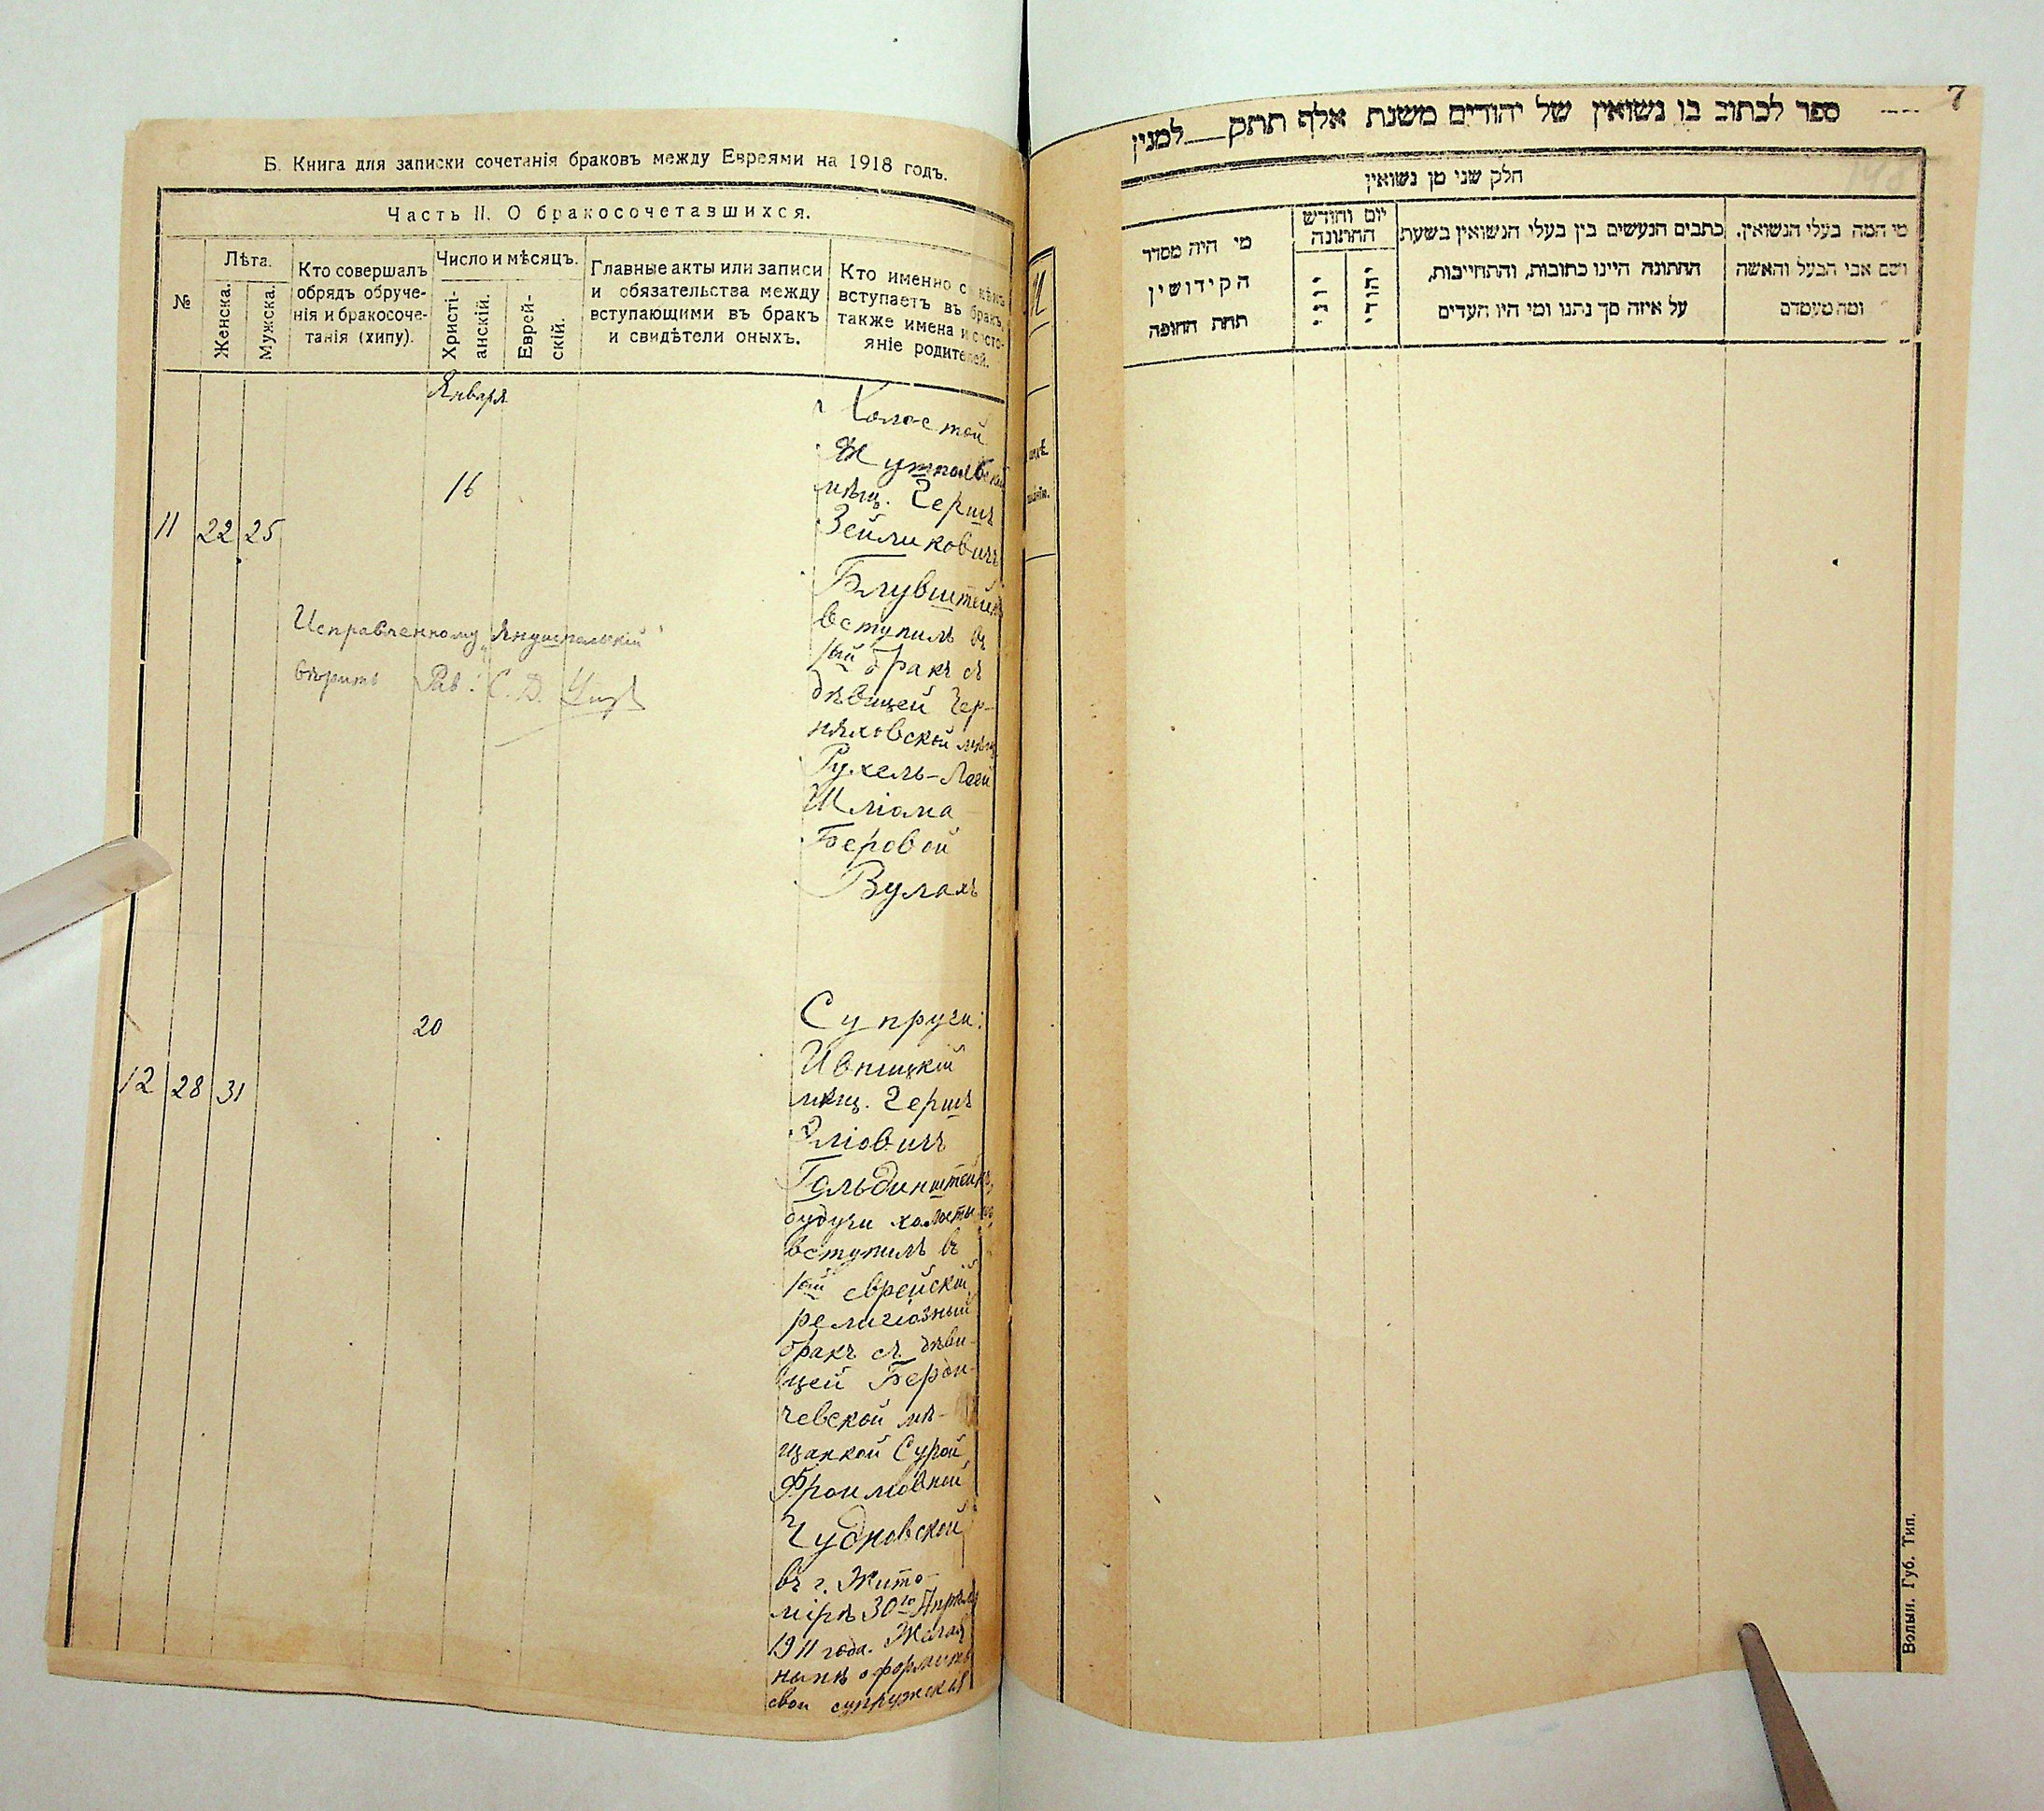 Б. Книга для записки сочетанія браковъ между Евреями на 1918 годъ.
Часть II. О бракосочетавшихся.
№
Лѣта.
Женска.
Мужска.
Кто совершалъ
обрядъ обруче-
нія и бракосоче-
танія (хипу).
Число и мѣсяцъ.
Христі-
анскій.
Еврей-
скій.
Главные акты или записи
и обязательства между
вступающими въ бракъ
и свидѣтели оныхъ.
Кто именно с кѣмъ
вступаетъ въ бракъ,
также имена и состо-
яніе родителей.
Января
16
11 22 25
Холостой
мѣщ. Гершъ
Зейликовичъ
Блувштейнъ
вступилъ въ
1ый бракъ съ
дѣвицей Чер-
няховской мѣщ
Рухель-Леей
Шліома
Беровой
Вулахъ
Исправленному "Янушпольскій"
вѣрить Рав:
20
12 28 31
Супруги:
Ивницкій
мѣщ. Гершъ
Эліовичъ
Гольдинштейнъ,
будучи холостымъ
вступилъ въ
1ый еврейскій
религіозный
бракъ съ дѣви-
цей Берди-
чевской мѣ-
щанкой Сурой
Фроимовной
Чудновской
въ г. Жито-
мірѣ 30го Апрѣля
1911 года. Желая
нынѣ оформить
свои супружскія
7
ספר לכתוב בו נשואין של יהודים משנת אלף תתק למנין
חלק שני מן נשואין
מי המה בעלי הנשואין.
ושם אבי הבעל והאשה
ומה מעמדם
כתבים הנעשים בין בעלי הנשואין בשעת
החתונה היינו כתובות, והתחייבות,
על איזה סך נתנו ומי היו העדים
יום וחודש
החתונה
יהודי
יוני
מי היה מסדר
הקידושין
תחת החופה
Волын. Губ. Тип.